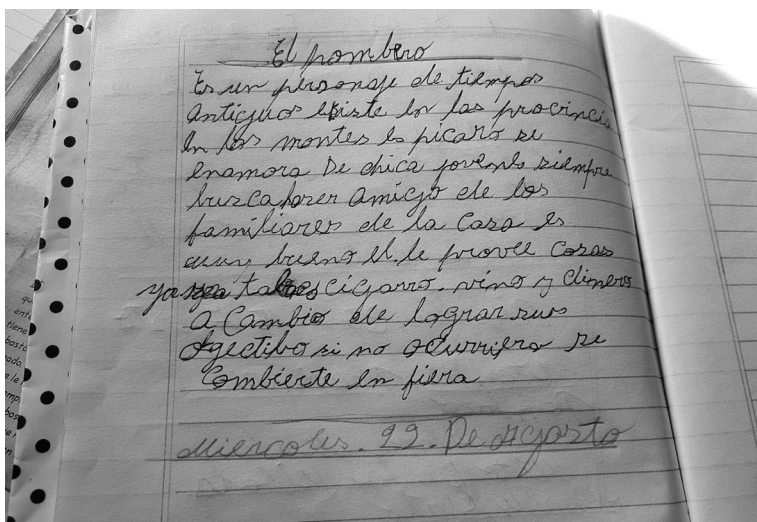 El pombero
Es un personaje de tiempos
antiguos existe en las provincia
En los montes es picaro se
enamora De chica jovenes siempre
busca hacer amigo de los
familiares de la casa es
muy bueno el le provee cosas
ya sea tabaco cigarro. vino y dinero
a cambio de lograr sus
ogectibo si no ocurriera se
combierte en fiera
Miercoles. 22. De Agosto